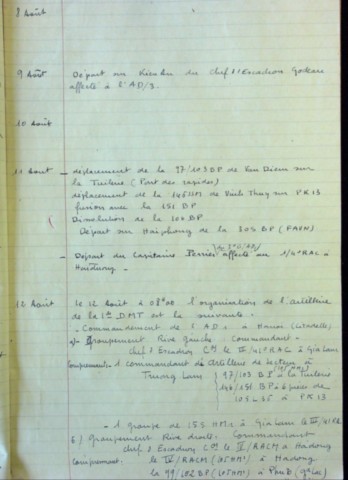 8 Août
9 Août Départ sur du Chef d'Escadron
affecté à l'AD/3.
10 Août
11 Août — déplacement de la 97/103 BP de Van Diem sur
la Tuilerie (Pont des rapides)
déplacement de la de Vinh Thuy sur PK 13
fusion avec la 151 BP
Dissolution de la 106 BP
Départ sur Haiphong de la 304 BP (FAVN)
— Départ du Capitaine Perrier affecté au 1/4° RAC à
Haiduong -
12 Août le 12 Août à 08h00 l'organisation de l'artillerie
de la 1ère DMT est la suivante -
- Commandement de l'AD1 à Hanoi (Citadelle)
a/- Groupement Rive gauche. Commandant -
chef d'Escadron Cmt le RAC à Gialam
Comprenant - 1 commandant d'artillerie de secteur à
97/103 BP à la Tuilerie
146/151 BP à 6 pièces de
105 à PK 13
- 1 groupe de 155 HM1 à Gialam le
b) groupement Rive droite. Commandant
chef d'Escadron Cmt le IV/RACM à Hadong
Comprenant le IV/RACM (105HM) à Hadong
le 99/102 BP (105HM) à